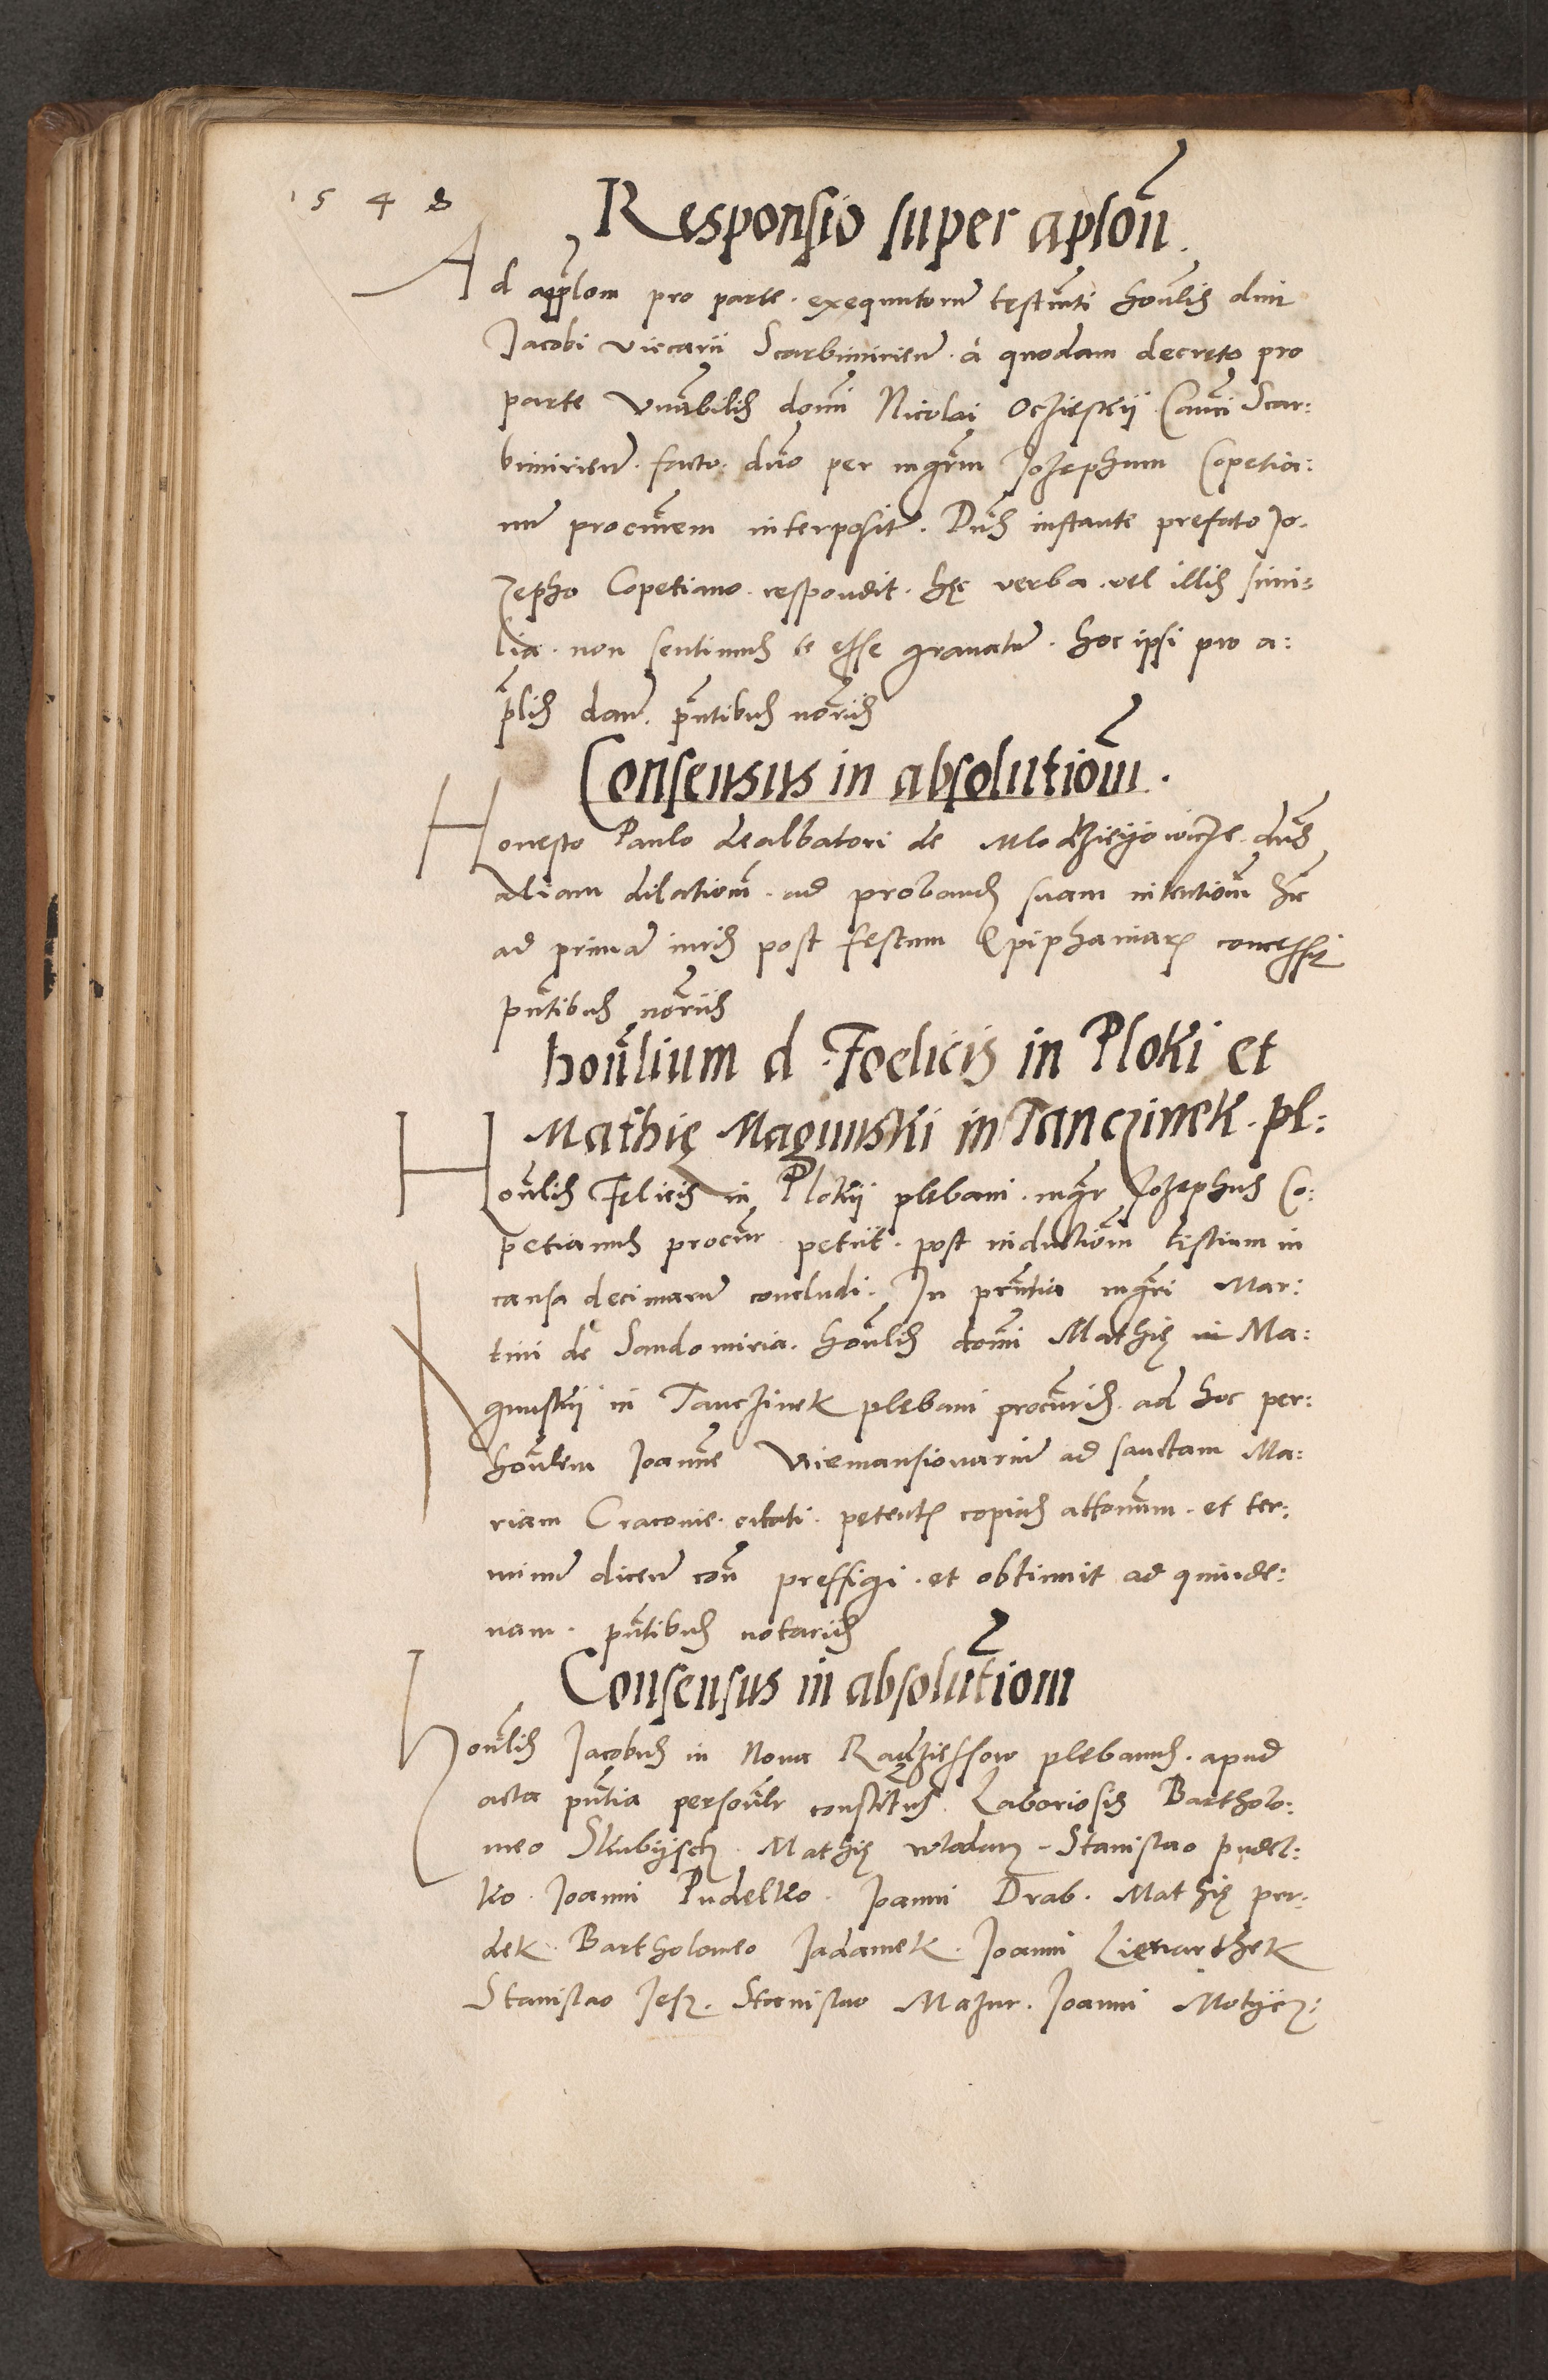 1548
Responsio super aplõn̄.
Ad appl̃om pro parte. exequutorum̃ testm̃ti hoñlis dnī
Jacobi viccarii Scarbimirien̄. à quodam decreto pro
parte vnãbilis domñi Nicolai Ocziesskij Canñci Scar:
bimirien̄. facto. dũo per mgr̃m Jozephum Copetia:
num̃ procũrem interposit̄. Dñs instante prefato Jo-
zepho Copetiano. respondit. hęc verba. vel illis simi:
lia. non sentimus te esse grauatū. hoc ipsi pro a:
p̃lis dan̄. pñtibus nor̃iis
Consensus in absolutioñm.
Honesto Paulo dealbatori de Mlodzieijowicze dñs
aliam dilationẽ. ad proband̄ suam intentionẽ hĩc
ad primā iuris post festum Epiphaniarʒ concessit
pñtibus nor̃iis
hoñlium d. Foelicis in Ploki et
Mathię Magunski in Tanczinek. pl:
Hoñlis Felicis in Plokij plebani. mgr̃ Jozephus Co:
petianus procũr. petiit. post inductionẽ testium in
causa decimarum̃ concludi. In pręñtia mgr̃i Mar:
tini de Sandomiria. hoñlis domñi Mathię in Ma:
gunskij in Tanczinek plebani procũris. ad hoc per:
hoñlem Joannē Viemansionarium̃ ad sanctam Ma:
riam Cracouie. citati. petentʒ copias attonum. et ter:
minū dicen̄ coñ prefigi. et obtinuit ad quinde:
nam. pñtibus notariis
Consensus in absolutĩom
Hoñlis Jacobus in Noua Radzieſsow plebanus. apud
acta pñtia persoñlr constitũs. Laboriosis Bartholo:
meo Skubijsch. Mathię wlodarz. Stanislao Pudel:
ko. Joanni Pudelko. Joanni Drab. Mathię per:
dek. Bartholomeo Jadamek. Joanni Lienarthek
Stanislao Jesz. Stanislao Mazur. Joanni Motijcz: